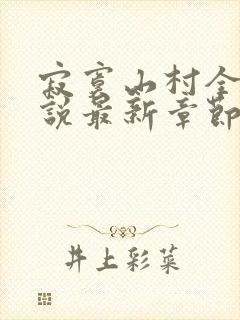 寂寞山村全
說最新章節
井上彩菜